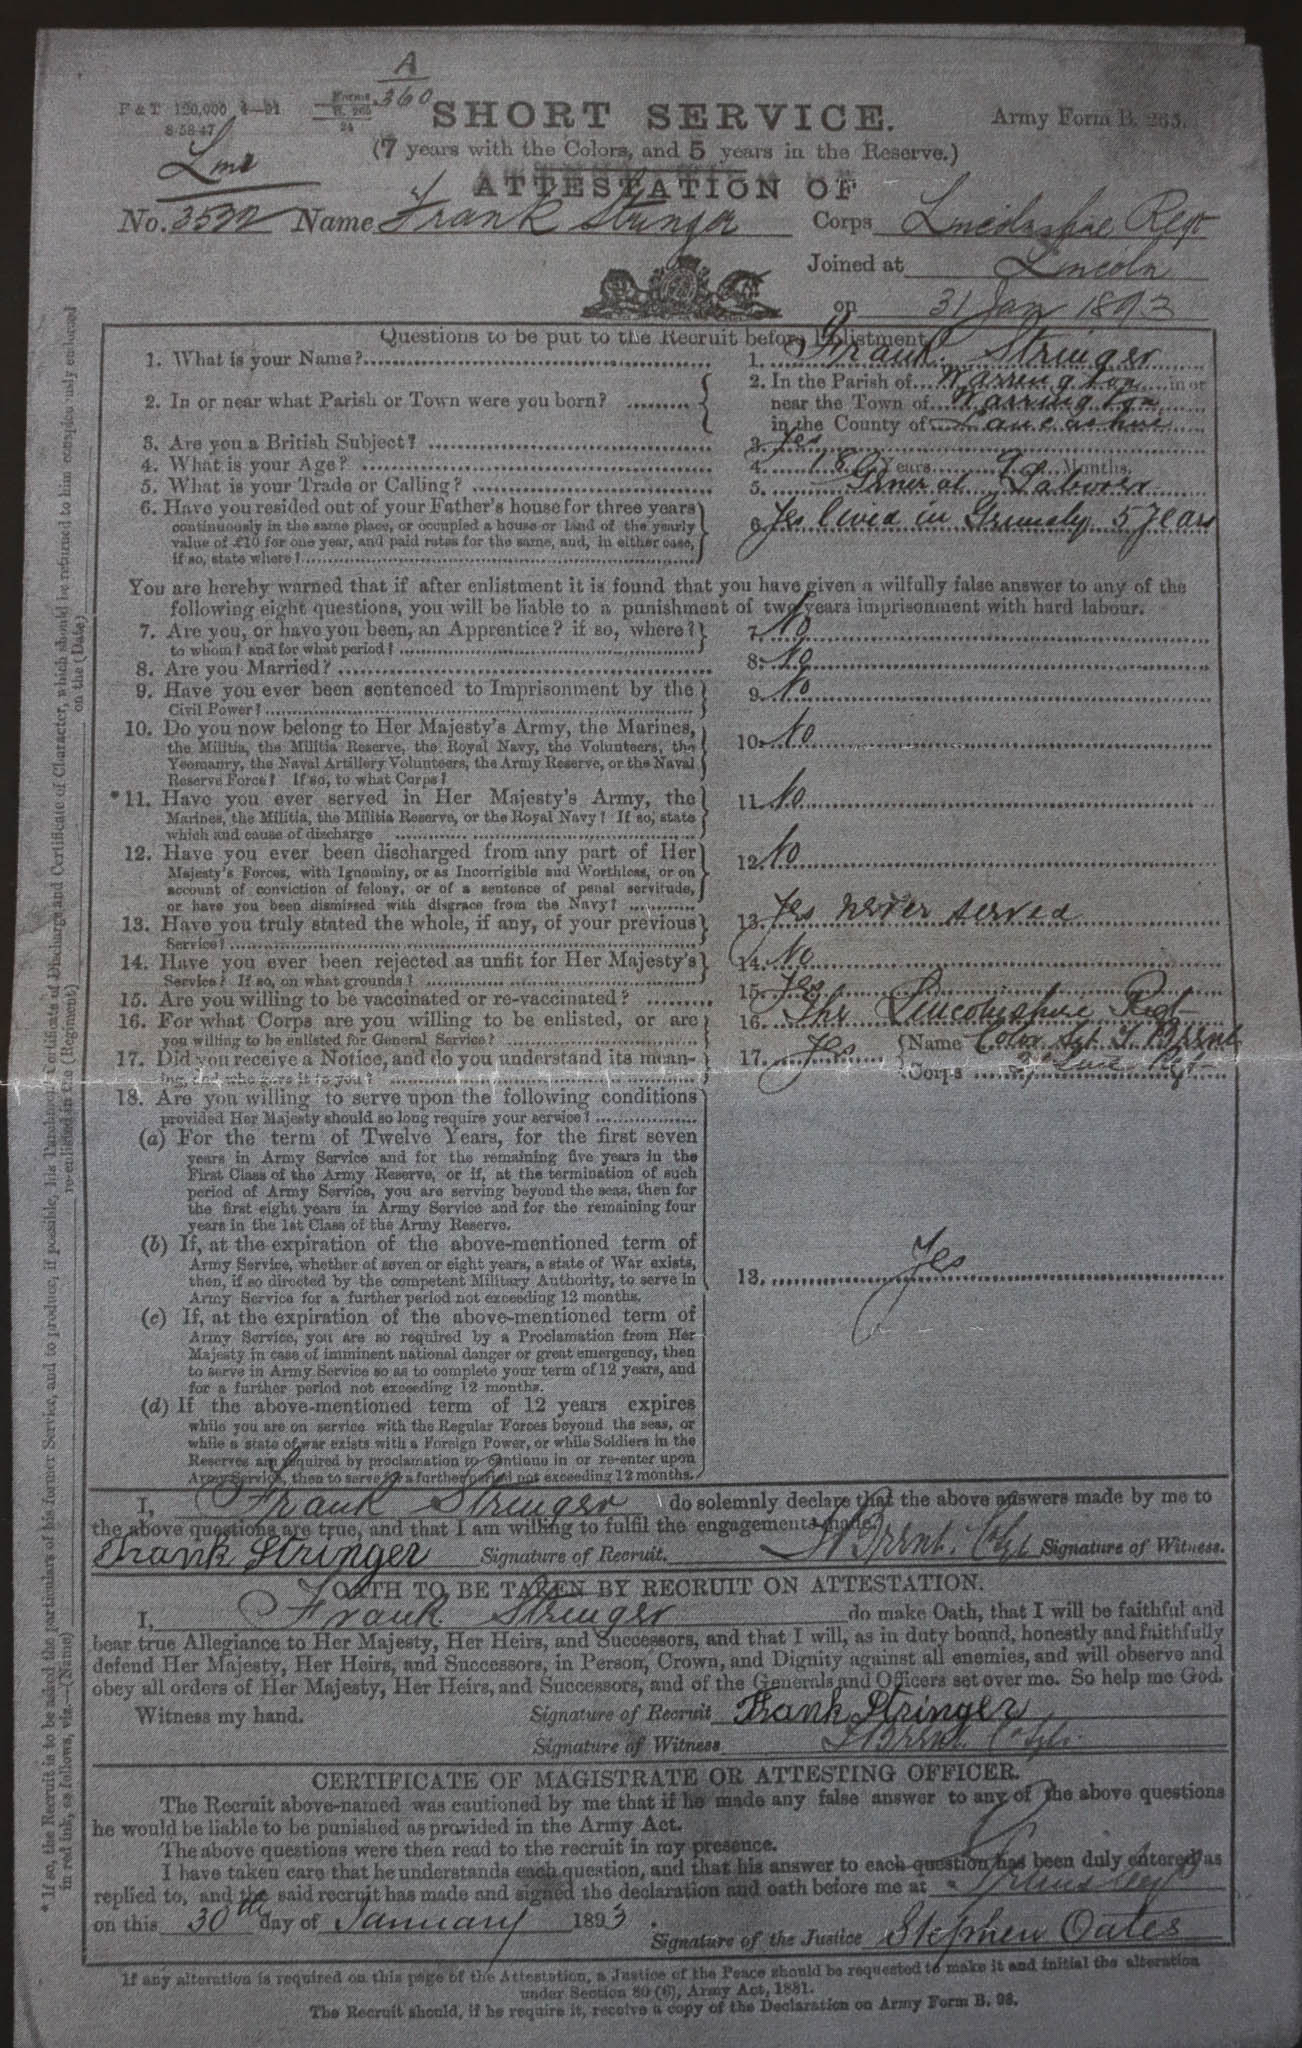 A
360
F & T 120,000 4—91
8·58·47
Forms
B. 265
24
SHORT SERVICE.
Army Form B. 265.
(7 years with the Colors, and 5 years in the Reserve.)
ATTESTATION OF
No. 3532 Name Frank Stringer Corps Lincolnshire Regt
Joined at Lincoln
on 31 Jan 1893
Questions to be put to the Recruit before Enlistment
1. What is your Name? 1. Frank Stringer
2. In or near what Parish or Town were you born? 2. In the Parish of Warrington in or
near the Town of Warrington
in the County of Lancashire
3. Are you a British Subject? 3. Yes
4. What is your Age? 4. 18 Years 9 Months.
5. What is your Trade or Calling? 5. General Laborer
6. Have you resided out of your Father's house for three years 6. Yes lived in Grimsby 5 years
continuously in the same place, or occupied a house or land of the yearly
value of £10 for one year, and paid rates for the same, and, in either case,
if so, state where?
You are hereby warned that if after enlistment it is found that you have given a wilfully false answer to any of the
following eight questions, you will be liable to a punishment of two years imprisonment with hard labour.
7. Are you, or have you been, an Apprentice? if so, where? 7. No
to whom? and for what period?
8. Are you Married? 8. No
9. Have you ever been sentenced to Imprisonment by the 9. No
Civil Power?
10. Do you now belong to Her Majesty's Army, the Marines, 10. No
the Militia, the Militia Reserve, the Royal Navy, the Volunteers, the
Yeomanry, the Naval Artillery Volunteers, the Army Reserve, or the Naval
Reserve Force? If so, to what Corps?
*11. Have you ever served in Her Majesty's Army, the 11. No
Marines, the Militia, the Militia Reserve, or the Royal Navy? If so, state
which and cause of discharge
12. Have you ever been discharged from any part of Her 12. No
Majesty's Forces, with Ignominy, or as Incorrigible and Worthless, or on
account of conviction of felony, or of a sentence of penal servitude,
or have you been dismissed with disgrace from the Navy?
13. Have you truly stated the whole, if any, of your previous 13. Yes never served
Service?
14. Have you ever been rejected as unfit for Her Majesty's 14. No
Service? If so, on what grounds?
15. Are you willing to be vaccinated or re-vaccinated? 15. Yes
16. For what Corps are you willing to be enlisted, or are 16. The Lincolnshire Regt
you willing to be enlisted for General Service?
17. Did you receive a Notice, and do you understand its mean- 17. Yes Name Color Sgt
ing, and who gave it to you? Corps
18. Are you willing to serve upon the following conditions
provided Her Majesty should so long require your service?
(a) For the term of Twelve Years, for the first seven
years in Army Service and for the remaining five years in the
First Class of the Army Reserve, or if, at the termination of such
period of Army Service, you are serving beyond the seas, then for
the first eight years in Army Service and for the remaining four
years in the 1st Class of the Army Reserve.
(b) If, at the expiration of the above-mentioned term of
Army Service, whether of seven or eight years, a state of War exists,
then, if so directed by the competent Military Authority, to serve in
Army Service for a further period not exceeding 12 months.
18. Yes
(c) If, at the expiration of the above-mentioned term of
Army Service, you are so required by a Proclamation from Her
Majesty in case of imminent national danger or great emergency, then
to serve in Army Service so as to complete your term of 12 years, and
for a further period not exceeding 12 months.
(d) If the above-mentioned term of 12 years expires
while you are on service with the Regular Forces beyond the seas, or
while a state of war exists with a Foreign Power, or while Soldiers in the
Reserves are required by proclamation to continue in or re-enter upon
Army Service, then to serve for a further period not exceeding 12 months.
I, Frank Stringer do solemnly declare that the above answers made by me to
the above questions are true, and that I am willing to fulfil the engagements made.
Frank Stringer Signature of Recruit. Signature of Witness.
OATH TO BE TAKEN BY RECRUIT ON ATTESTATION.
I, Frank Stringer do make Oath, that I will be faithful and
bear true Allegiance to Her Majesty, Her Heirs, and Successors, and that I will, as in duty bound, honestly and faithfully
defend Her Majesty, Her Heirs, and Successors, in Person, Crown, and Dignity against all enemies, and will observe and
obey all orders of Her Majesty, Her Heirs, and Successors, and of the Generals and Officers set over me. So help me God.
Witness my hand. Signature of Recruit Frank Stringer
Signature of Witness
CERTIFICATE OF MAGISTRATE OR ATTESTING OFFICER.
The Recruit above-named was cautioned by me that if he made any false answer to any of the above questions
he would be liable to be punished as provided in the Army Act.
The above questions were then read to the recruit in my presence.
I have taken care that he understands each question, and that his answer to each question has been duly entered as
replied to, and the said recruit has made and signed the declaration and oath before me at Grimsby
on this 30th day of January 1893.
Signature of the Justice Stephen Oates
If any alteration is required on this page of the Attestation, a Justice of the Peace should be requested to make it and initial the alteration
under Section 80 (6), Army Act, 1881.
The Recruit should, if he require it, receive a copy of the Declaration on Army Form B. 98.
* If so, the Recruit is to be asked the particulars of his former Service, and to produce, if possible, his Parchment Certificate of Discharge and Certificate of Character, which should be returned to him conspicuously endorsed
in red ink, as follows, viz.—(Name) re-enlisted in the (Regiment) on the (Date)